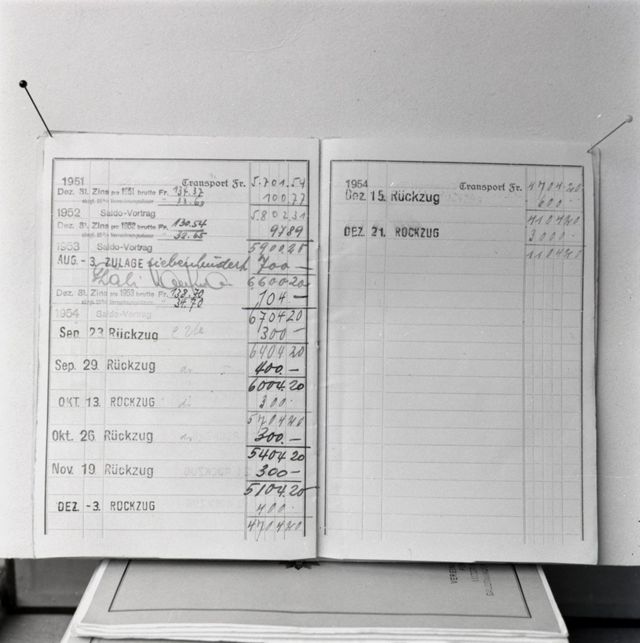 1951 Transport Fr. 5.701.54
Dez. 31. Zins pro 1951 brutto Fr. 134.37
100.77
1952 Saldo-Vortrag 5802.31
Dez. 31. Zins pro 1952 brutto Fr. 130.54
32.65 97.89
1953 Saldo-Vortrag 5900.20
AUG. -3. ZULAGE siebenhundert 700.—
6600.20
Dez. 31. Zins pro 1953 brutto Fr. 138.70
34.70 104.—
1954 Saldo-Vortrag 6704.20
Sep. 23. Rückzug 300.—
6404.20
Sep. 29. Rückzug 400.—
6004.20
OKT. 13. RÜCKZUG 300.
5704.20
Okt. 26. Rückzug 300.—
5404.20
Nov. 19. Rückzug 300.—
5104.20
DEZ. -3. RÜCKZUG 400.
4704.20
1954 Transport Fr. 4704.20
Dez. 15. Rückzug 600.—
4104.20
DEZ. 21. RÜCKZUG 3000.—
1104.20